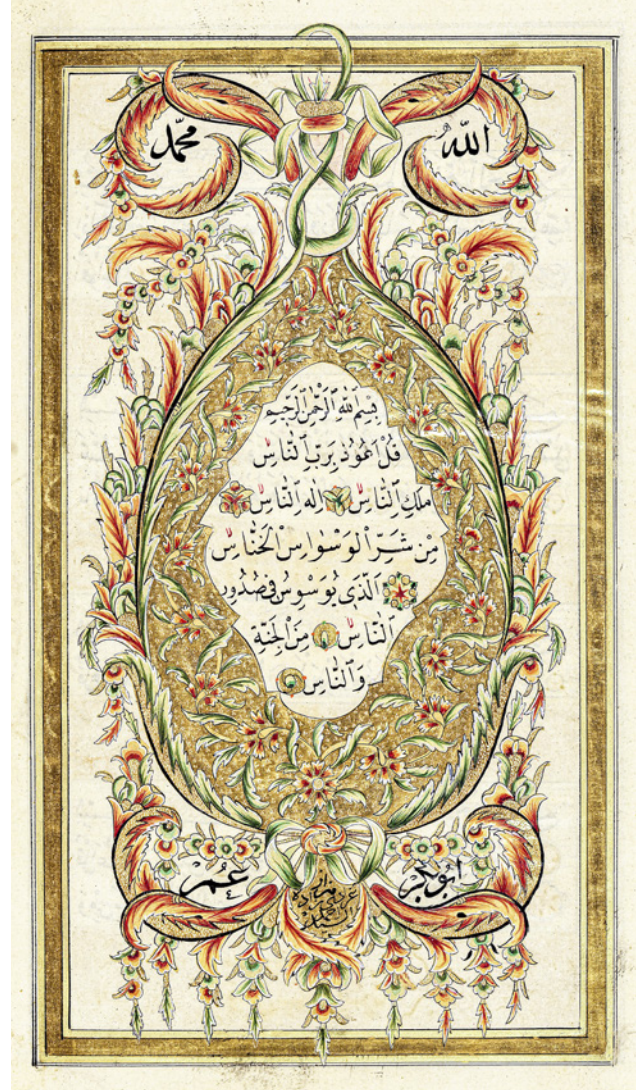 الله
محمد
بِسْمِ ٱللّٰهِ ٱلرَّحْمٰنِ ٱلرَّحِيمِ
قُلْ أَعُوذُ بِرَبِّ ٱلنَّاسِ
مَلِكِ ٱلنَّاسِ إِلٰهِ ٱلنَّاسِ
مِنْ شَرِّ ٱلْوَسْوَاسِ ٱلْخَنَّاسِ
ٱلَّذِي يُوَسْوِسُ فِي صُدُورِ
ٱلنَّاسِ مِنَ ٱلْجِنَّةِ
وَٱلنَّاسِ
ابو بكر
عمر